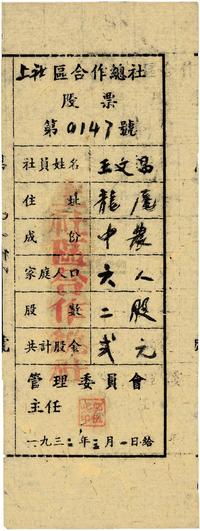 上社區合作總社
股票
第0147號
社員姓名 王文昌
住址 龍尾
成份 中農
家庭人口 六人
股數 二股
共計股金 弍元
管理委員會
主任
一九三二年三月一日給